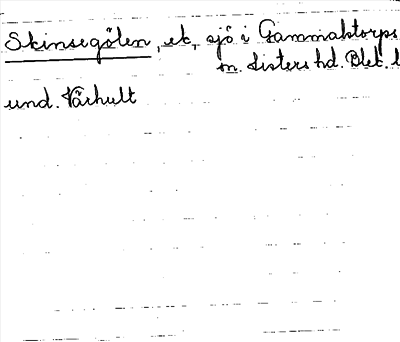 Skinsegölen, ek, sjö i Gammaltorps
sn. Listers hd. Blek. l
und. Vårhult